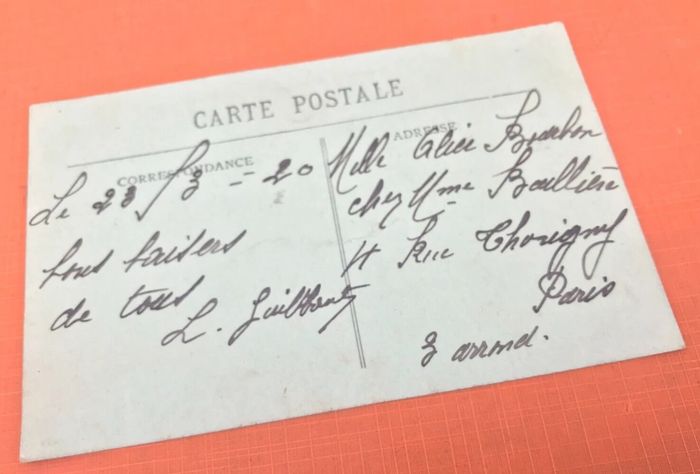 CARTE POSTALE
CORRESPONDANCE
Le 23/3 - 20
bons baisers
de tous
L.
ADRESSE
Melle Alice Bourbon
chez Mme Ballière
4 Rue Thorigny
Paris
3 arrond.